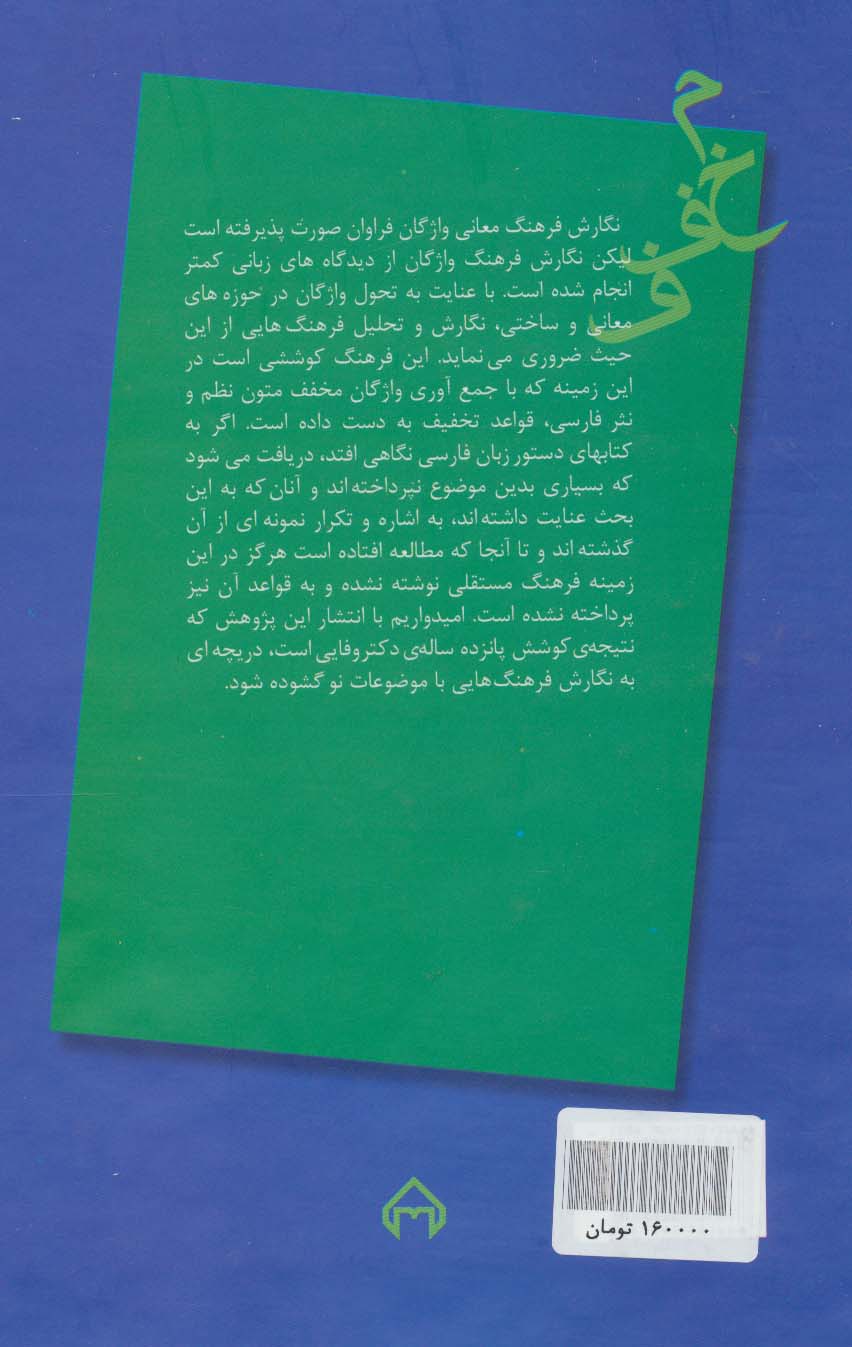 م
خ
ف
ف
نگارش فرهنگ معانی واژگان فراوان صورت پذیرفته است
لیکن نگارش فرهنگ واژگان از دیدگاه های زبانی کمتر
انجام شده است. با عنایت به تحول واژگان در حوزه های
معانی و ساختی، نگارش و تحلیل فرهنگ هایی از این
حیث ضروری می نماید. این فرهنگ کوششی است در
این زمینه که با جمع آوری واژگان مخفف متون نظم و
نثر فارسی، قواعد تخفیف به دست داده است. اگر به
کتابهای دستور زبان فارسی نگاهی افتد، دریافت می شود
که بسیاری بدین موضوع نپرداخته اند و آنان که به این
بحث عنایت داشته اند، به اشاره و تکرار نمونه ای از آن
گذشته اند و تا آنجا که مطالعه افتاده است هرگز در این
زمینه فرهنگ مستقلی نوشته نشده و به قواعد آن نیز
پرداخته نشده است. امیدواریم با انتشار این پژوهش که
نتیجه‌ی کوشش پانزده ساله‌ی دکتر وفایی است، دریچه ای
به نگارش فرهنگ هایی با موضوعات نو گشوده شود.
۱۶۰۰۰۰ تومان